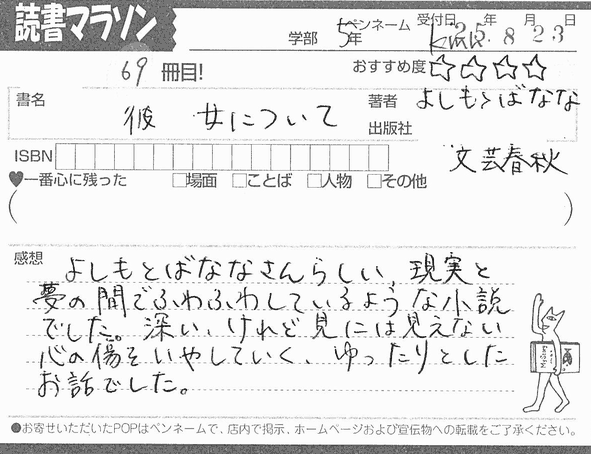 読書マラソン
学部 5年 ペンネーム 受付日 年 月 日
kimu 25.8 23
69 冊目!
おすすめ度 ☆☆☆☆
書名 彼女について
著者 よしもとばなな
出版社 文芸春秋
ISBN
♥一番心に残った □場面 □ことば □人物 □その他
( )
感想 よしもとばななさんらしい、現実と
夢の間でふわふわしているような小説
でした。深い、けれど見には見えない
心の傷をいやしていく、ゆったりとした
お話でした。
●お寄せいただいたPOPはペンネームで、店内で掲示、ホームページおよび宣伝物への転載をご了承ください。